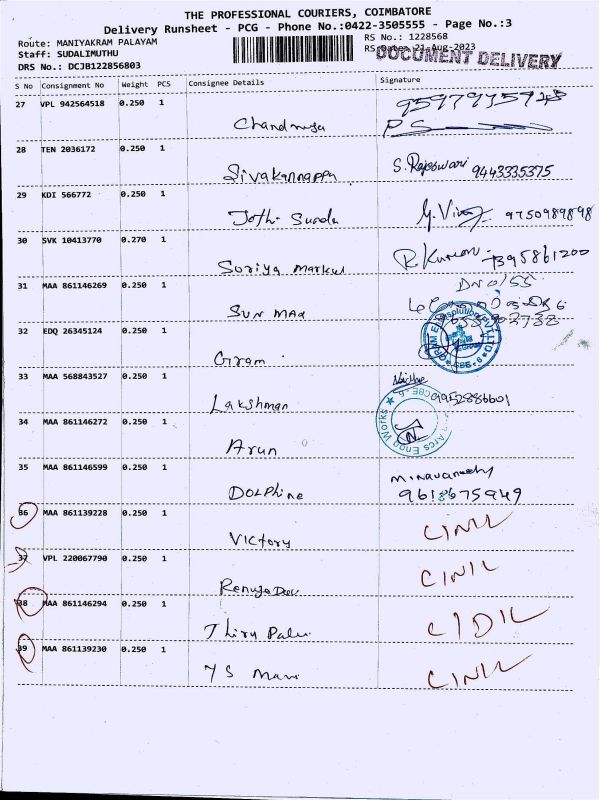 THE PROFESSIONAL COURIERS, COIMBATORE
Delivery Runsheet - PCG - Phone No.:0422-3505555 - Page No.:3
Route: MANIYAKRAM PALAYAM
RS No.: 1228568
Staff: SUDALIMUTHU
RS Date: 21-Aug-2023
DOCUMENT DELIVERY
DRS No.: DCJB122856803
S No Consignment No Weight PCS Consignee Details Signature
27 VPL 942564518 0.250 1
28 TEN 2036172 0.250 1 S. Rajeswari 9443335375
Sivakannappa
29 KDI 566772 0.250 1
Jothi Sunda 9750989898
30 SVK 10413770 0.270 1
Soriya Markul 7395861200
31 MAA 861146269 0.250 1
SUN MAA
32 EDQ 26345124 0.250 1
Gram
33 MAA 568843527 0.250 1
Lakshman 9952886601
34 MAA 861146272 0.250 1
Arun
35 MAA 861146599 0.250 1
DOLPhine 9618675949
36 MAA 861139228 0.250 1
Victory C/NIL
37 VPL 220067790 0.250 1
Renuga Devi C/NIL
38 MAA 861146294 0.250 1
Thiru Palani
39 MAA 861139230 0.250 1
YS Mani C/NIL